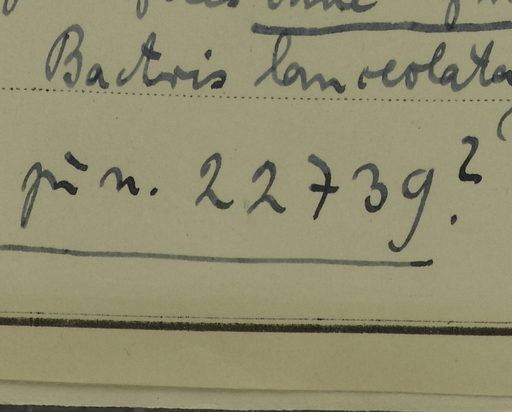 Bactris lanceolata
für n. 22739?